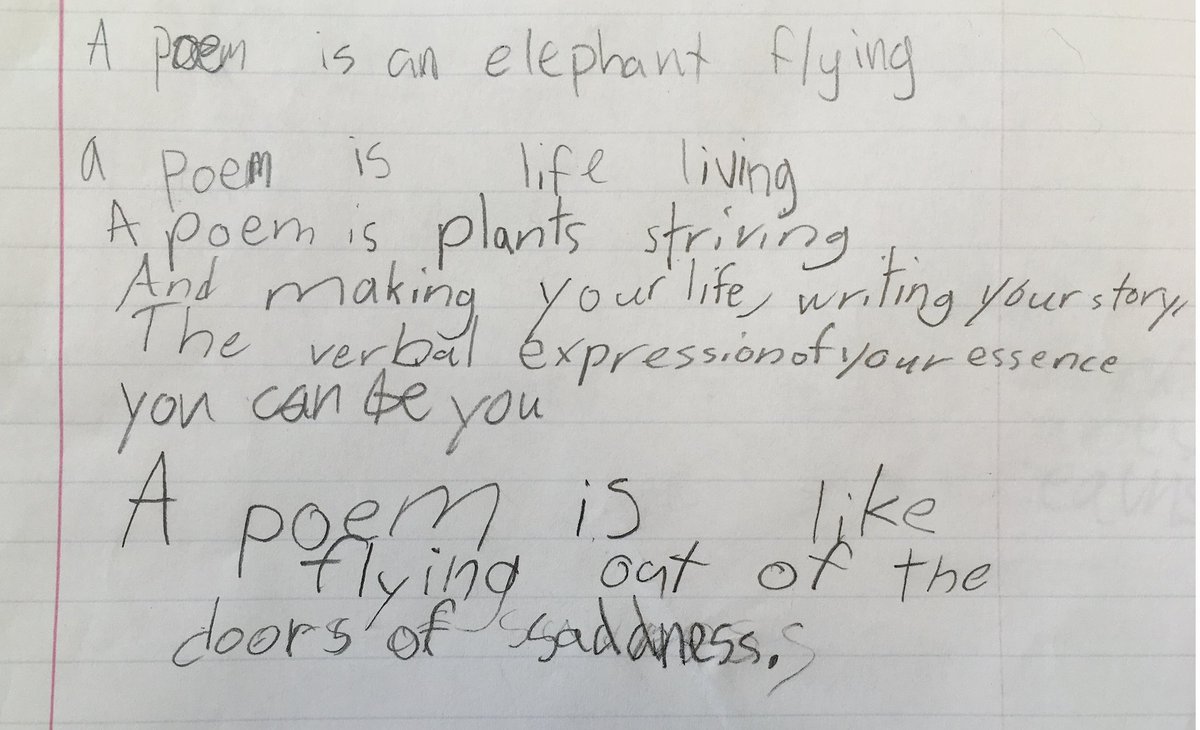 A poem is an elephant flying
a poem is life living
A poem is plants striving
And making your life, writing your story,
The verbal expression of your essence
you can be you
A poem is like
flying out of the
doors of saddness.